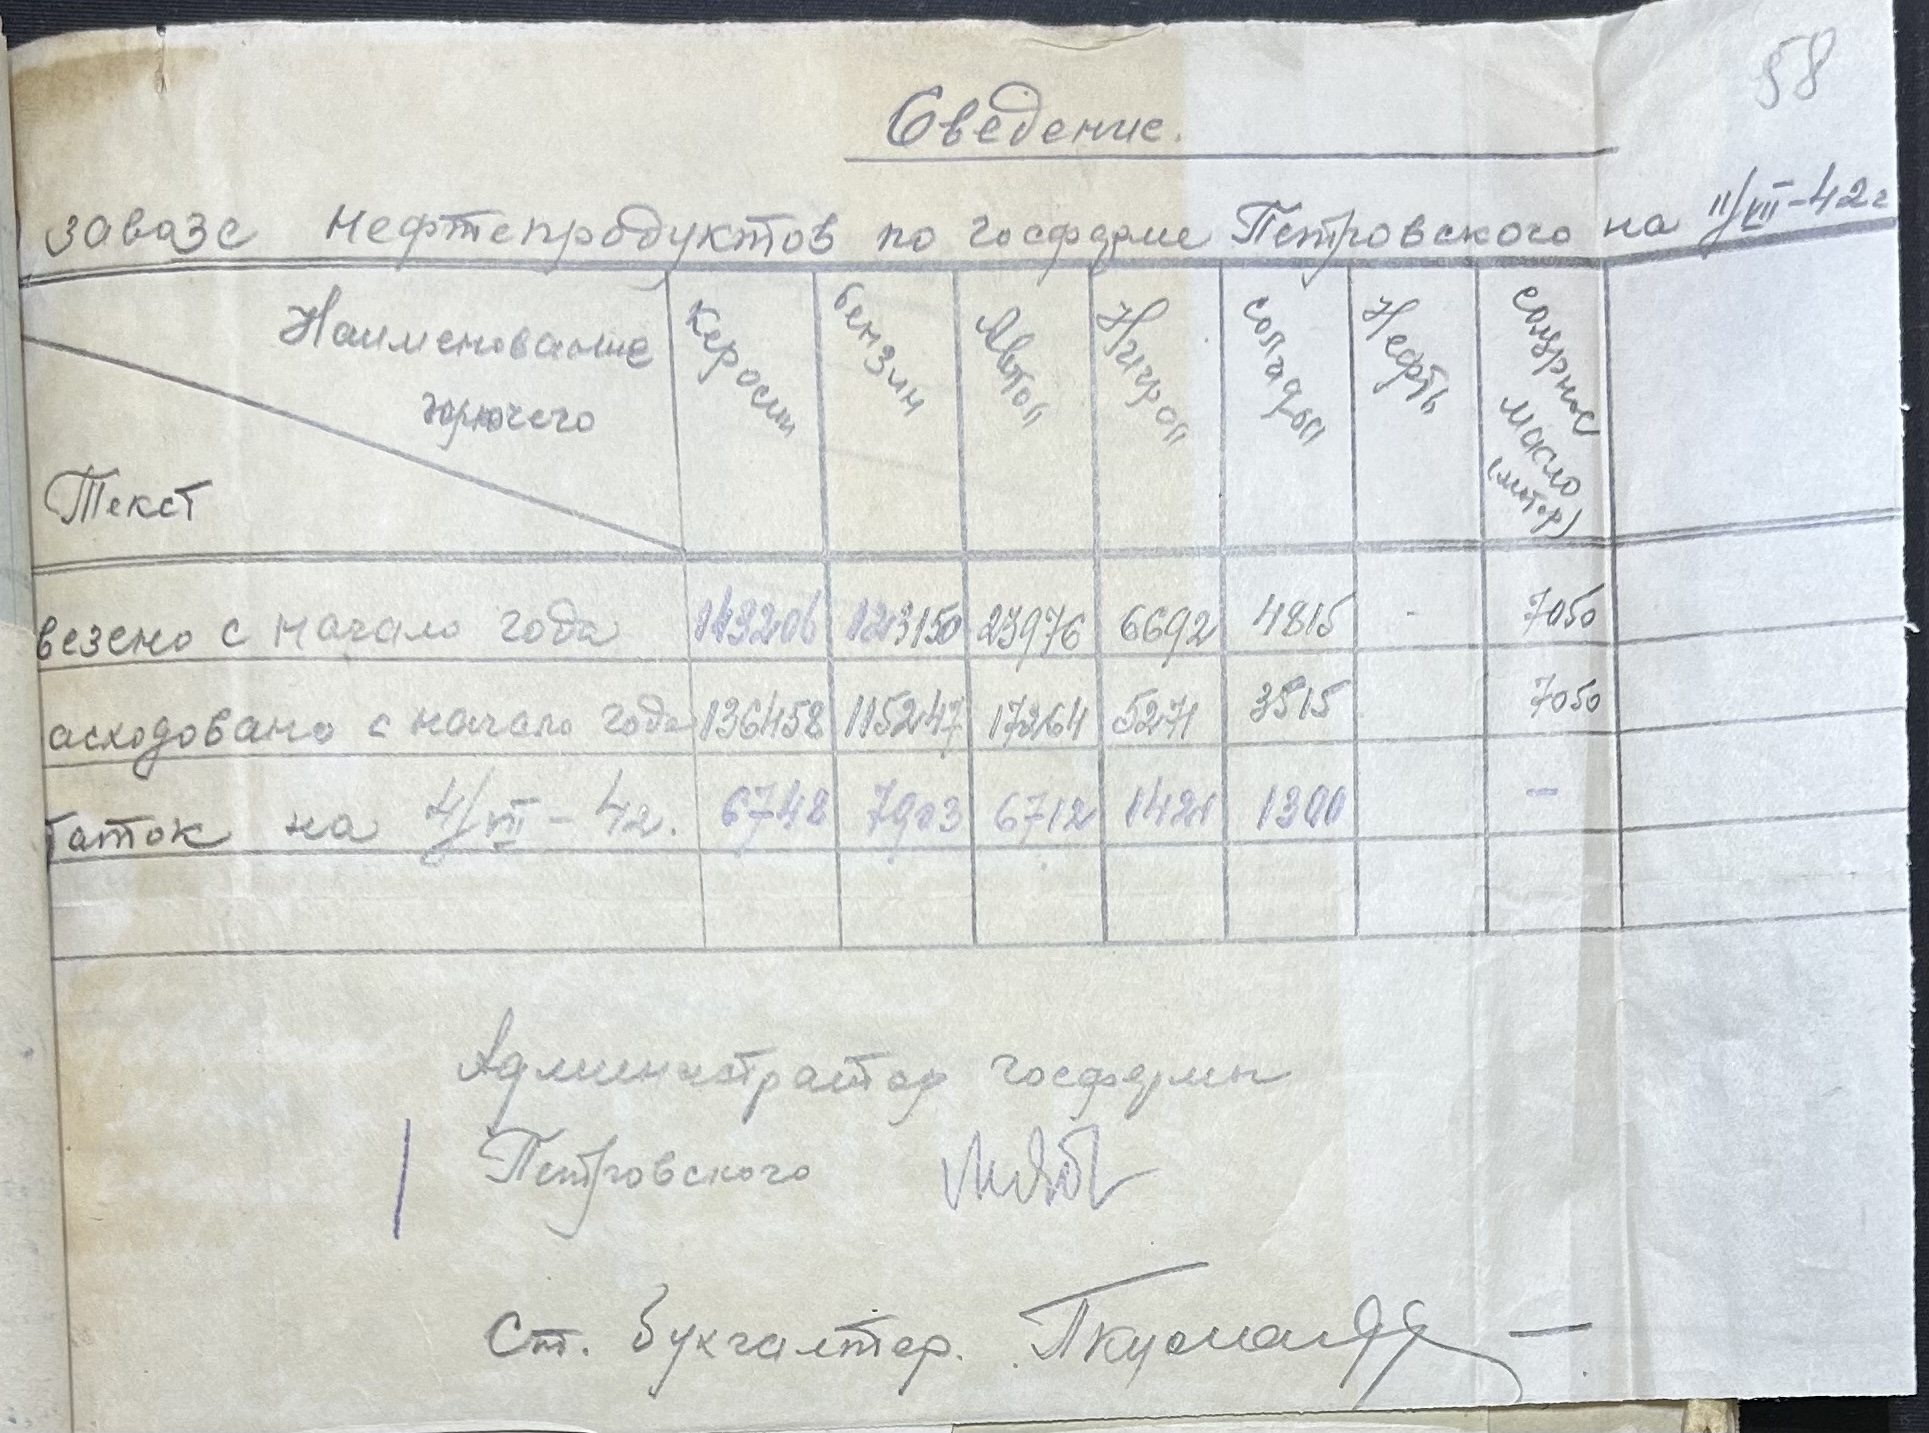 58
Сведение.
завозе нефтепродуктов по госферме Петровского на 11/VII-42г
Наименование горючего
Керосин
бензин
Автол
Нигрол
солидол
Нефть
соляровое масло (мотор)
Текст
везено с начало года 143206 123150 23976 6692 4815 - 7050
асходовано с начало года 136458 115247 17264 5271 3515 7050
таток на 11/VII-42. 6748 7903 6712 1421 1300 -
Администратор госфермы
Петровского
Ст. бухгалтер.